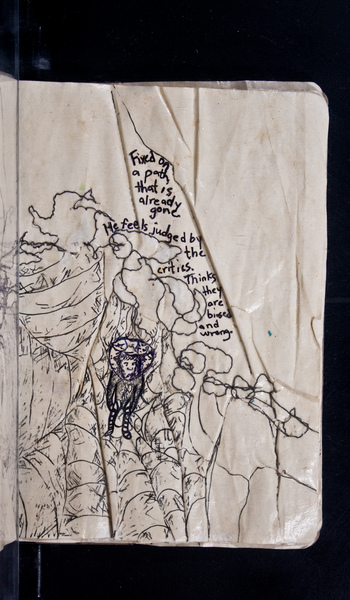 Fixed on
a path
that is
already
gone.
He feels judged by
the
critics.
Thinks
they
are
biased
and
wrong.